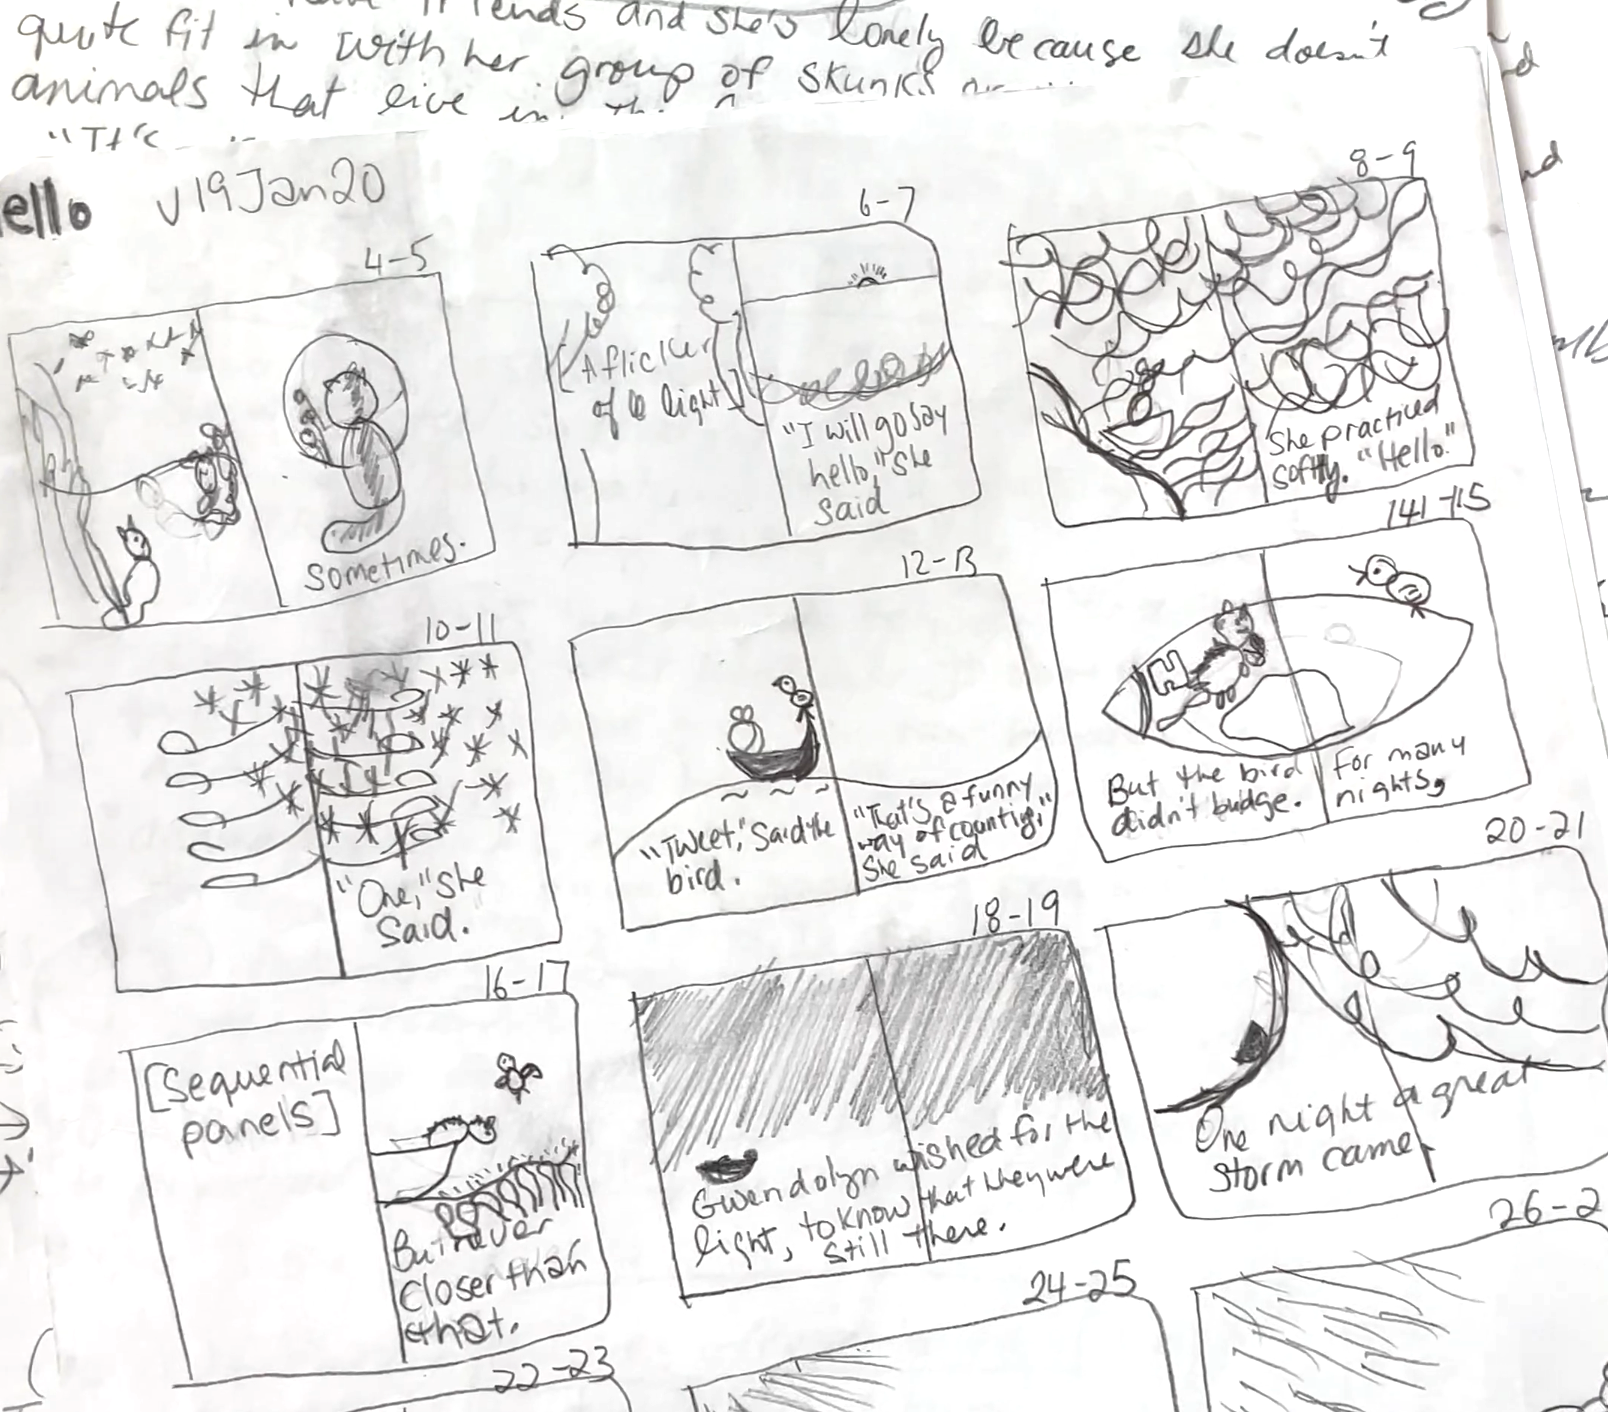 friends and she's lonely because she doesn't
quite fit in with her group of skunks
animals that live in
"It's
ello v19Jan20
4-5
Sometimes.
6-7
[A flicker
of light]
"I will go say
hello," she
said
8-9
She practiced
softly. "Hello."
10-11
"One," she
said.
12-13
"Tweet," said the
bird.
"That's a funny
way of counting,"
she said
14-15
But the bird
didn't budge.
For many
nights,
16-17
[Sequential
panels]
But never
closer than
that.
18-19
Gwendolyn wished for the
light, to know that they were
still there.
20-21
One night a great
storm came
22-23
24-25
26-2